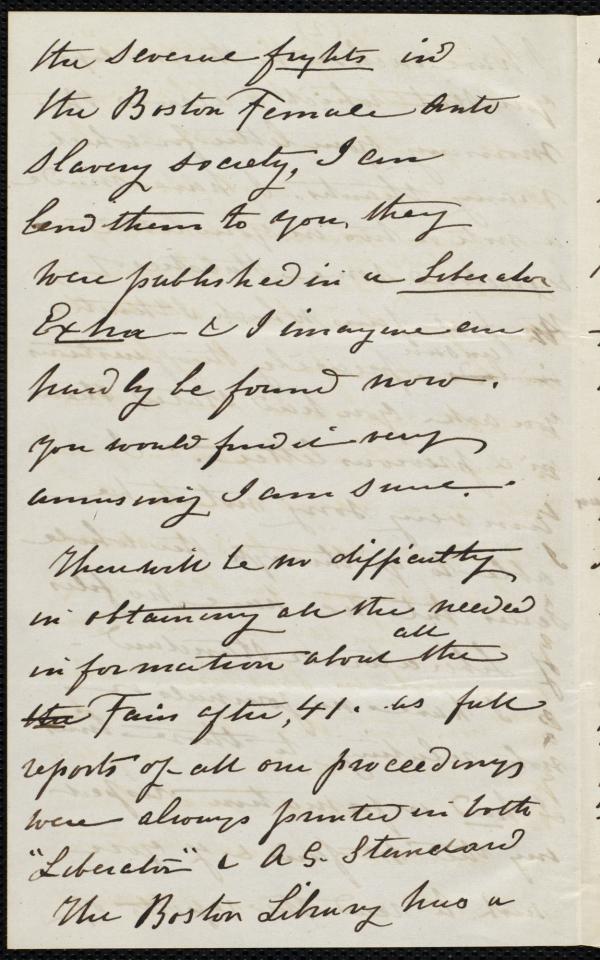 the several fights in
the Boston Female Anti
Slavery society, I can
lend them to you, they
were published in a Liberator
Extra - & I imagine can
hardly be found now.
You would find it very
amusing I am sure.
There will be no difficulty
in obtaining all the needed
information about all the
the Fairs after, 41. as full
reports of all our proceedings
were always printed in both
"Liberator" & A S. Standard
The Boston Library has a